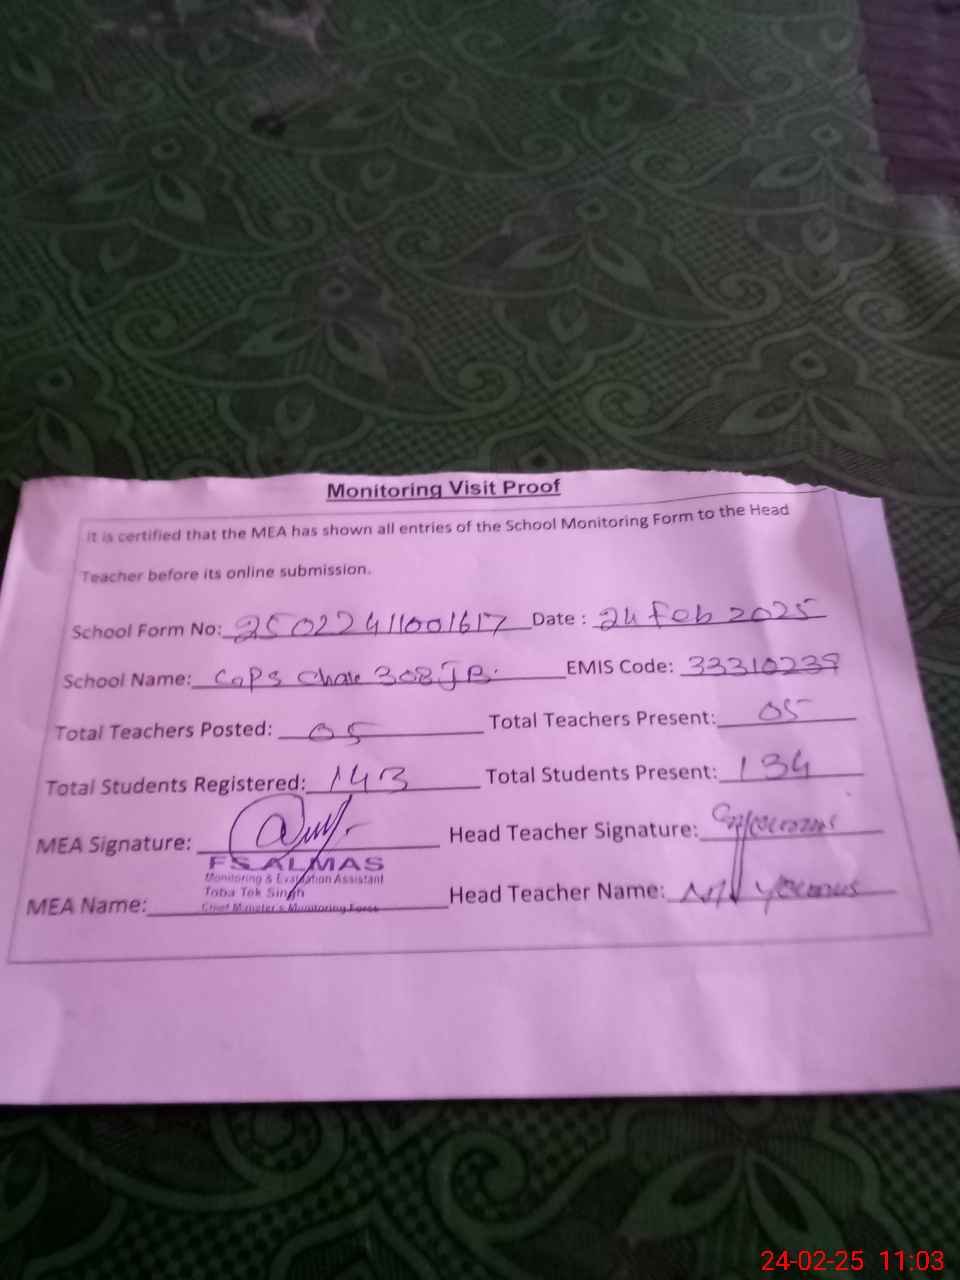 Monitoring Visit Proof
It is certified that the MEA has shown all entries of the School Monitoring Form to the Head
Teacher before its online submission.
School Form No: 25022411001617 Date : 24 Feb 2025
School Name: GPS Chak 308 JB. EMIS Code: 33310239
Total Teachers Posted: 05 Total Teachers Present: 05
Total Students Registered: 143 Total Students Present: 134
MEA Signature: Head Teacher Signature:
FS ALMAS
Monitoring & Evaluation Assistant
Toba Tek Singh
Chief Minister's Monitoring Force
MEA Name: Head Teacher Name:
24-02-25 11:03